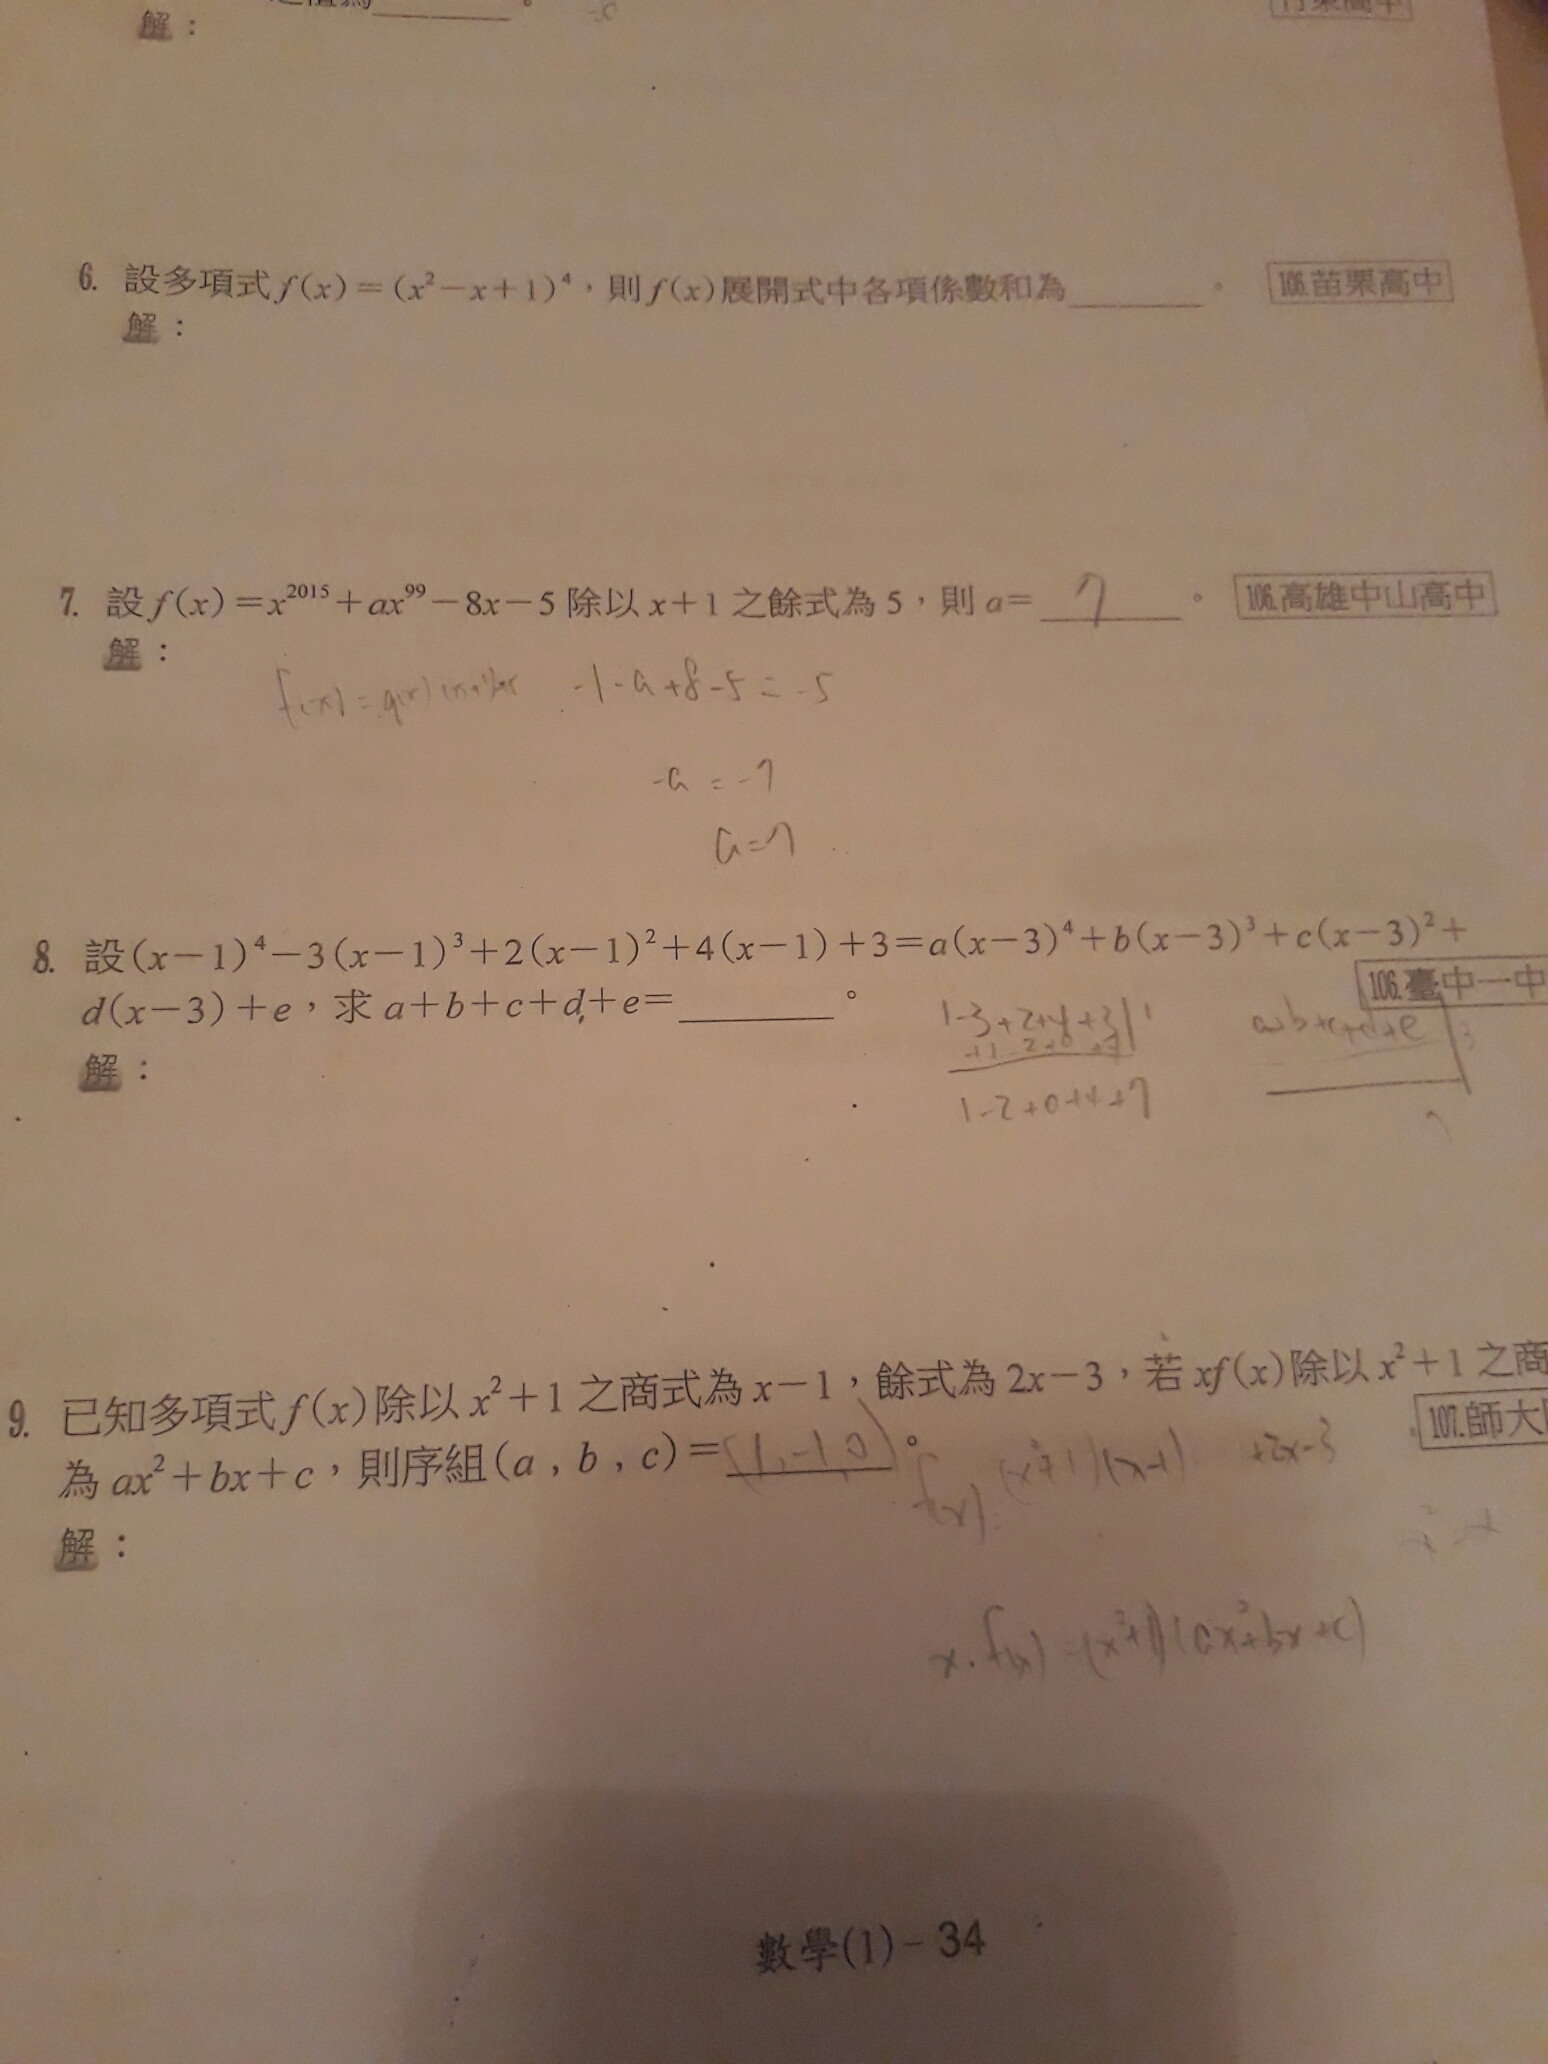 解：
6. 設多項式 f(x)＝(x²－x＋1)⁴，則 f(x) 展開式中各項係數和為______。 106.苗栗高中
解：
7. 設 f(x)＝x²⁰¹⁵＋ax⁹⁹－8x－5 除以 x＋1 之餘式為 5，則 a＝ 7 。 106.高雄中山高中
解：
-1-a+8-5=-5
-a=-7
a=7
8. 設(x－1)⁴－3(x－1)³＋2(x－1)²＋4(x－1)＋3＝a(x－3)⁴＋b(x－3)³＋c(x－3)²＋
d(x－3)＋e，求 a＋b＋c＋d＋e＝______。 106.臺中一中
解：
1-3+2+4+3 1
a+b+c+d+e 3
1-2+0+4+7
9. 已知多項式 f(x) 除以 x²＋1 之商式為 x－1，餘式為 2x－3，若 xf(x) 除以 x²＋1 之商
為 ax²＋bx＋c，則序組(a，b，c)＝(1,-1,0)。 107.師大
f(x) (x²+1)(x-1) +2x-3
解：
x²-x
x·f(x)=(x²+1)(ax²+bx+c)
數學(1)－34